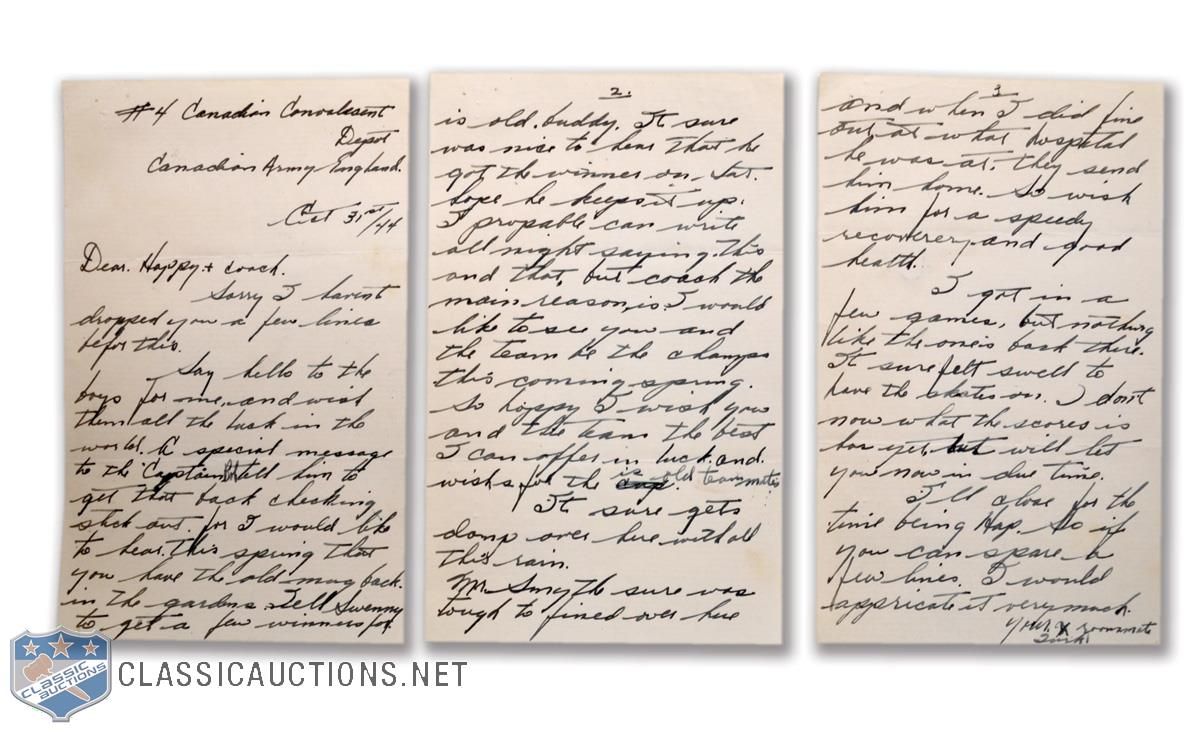 #4 Canadian Convalesent
Depot
Canadian Army England.
Oct 31st/44
Dear. Happy + coach.
Sorry I havent
dropped you a few lines
befor this.
Say hello to the
boys for me, and wish
them all the luck in the
world. A special message
to the Captain tell him to
get that back checking
stick out. for I would like
to hear. this spring that
you have the old mug back.
in the gardens. Tell Swenny
to get a few winners for
2.
is old. buddy. It sure
was nice to hear that he
got the winner on, Sat.
hope he keeps it up.
I propable can write
all night saying. this
and that, but coach the
main reason, is. I would
like to see you and
the team be the champs
this coming spring.
So happy I wish you
and the team the best
I can offer in luck. and.
wishs for the is old teammates
It sure gets
damp over here with all
this rain.
Mr. Smythe sure was
tough to fined over here
3
and when I did fine
out at what hospital
he was at, they send
him home. So wish
him for a speedy
recoverery and good
health.
I got in a
few games, but nothing
like the one's back there.
It sure felt swell to
have the skates on. I don't
now what the scores is
har yet but will let
you now in due time.
I'll close for the
time being Hap. So if
you can spare a
few lines. I would
appricate it very much.
X roommate
CLASSIC
AUCTIONS
CLASSICAUCTIONS.NET